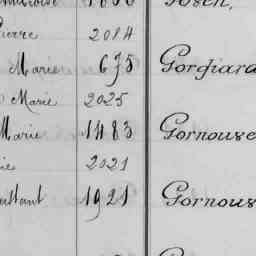 Pierre 2014
Marie 675 Gorgiard
Marie 2025
Marie 1483 Gornouse
2021
1921 Gornous